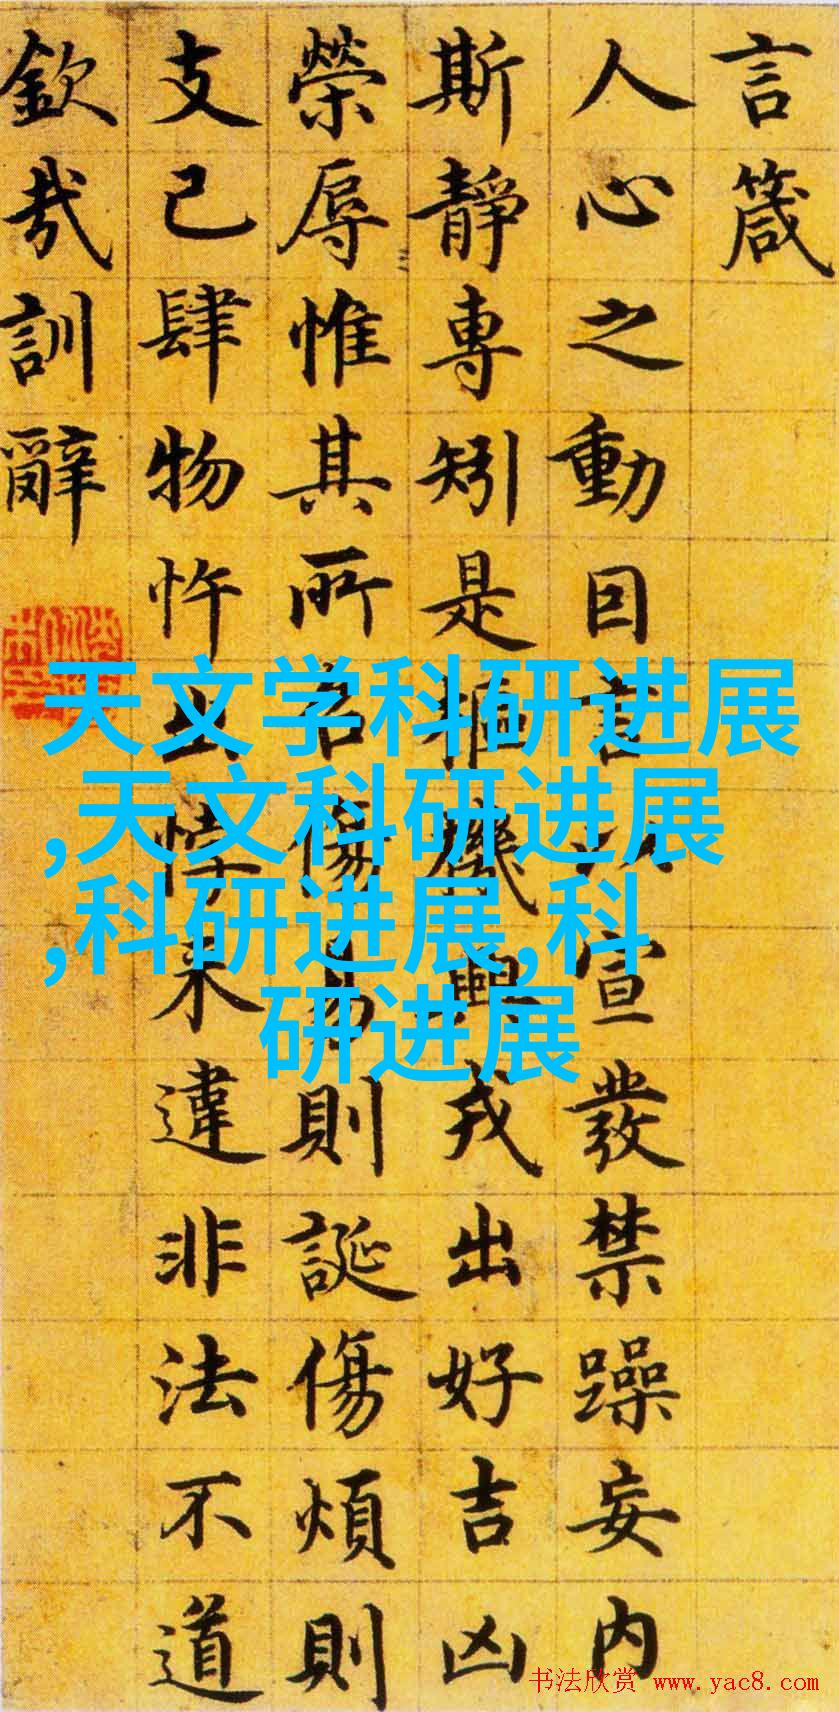 言箴
人心之動因言以宣發禁躁妄内
斯靜專矧是樞機興戎出好吉凶
榮辱惟其所召傷易則誕傷煩則
支己肆物忤出悖来違非法不道
欽哉訓辭
天文学科研进展
,天文科研进展
,科研进展,科
研进展
书法欣赏 www.yac8.com